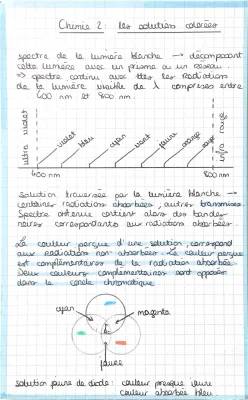 Chimie 2 : les solutions colorées
spectre de la lumière blanche → décomposant
cette lumière avec un prisme ou un réseau.
⇒ spectre continu avec ttes les radiations
de la lumière visible de λ comprises entre
400 nm et 800 nm.
ultra violet
violet
bleu
cyan
vert
jaune
orange
rouge
infra rouge
400 nm
800 nm
solution traversée par la lumière blanche →
certaines radiations absorbées, autres transmises
Spectre obtenue contient alors des bandes
noires correspondants aux radiations absorbées
La couleur perçue d'une solution correspond
aux radiations non absorbées. La couleur perçue
est complémentaires de la radiation absorbée.
Deux couleurs complémentaires sont opposées
dans le cercle chromatique.
cyan
magenta
jaune
solution jaune de diode : couleur presque jaune
couleur absorbée bleu